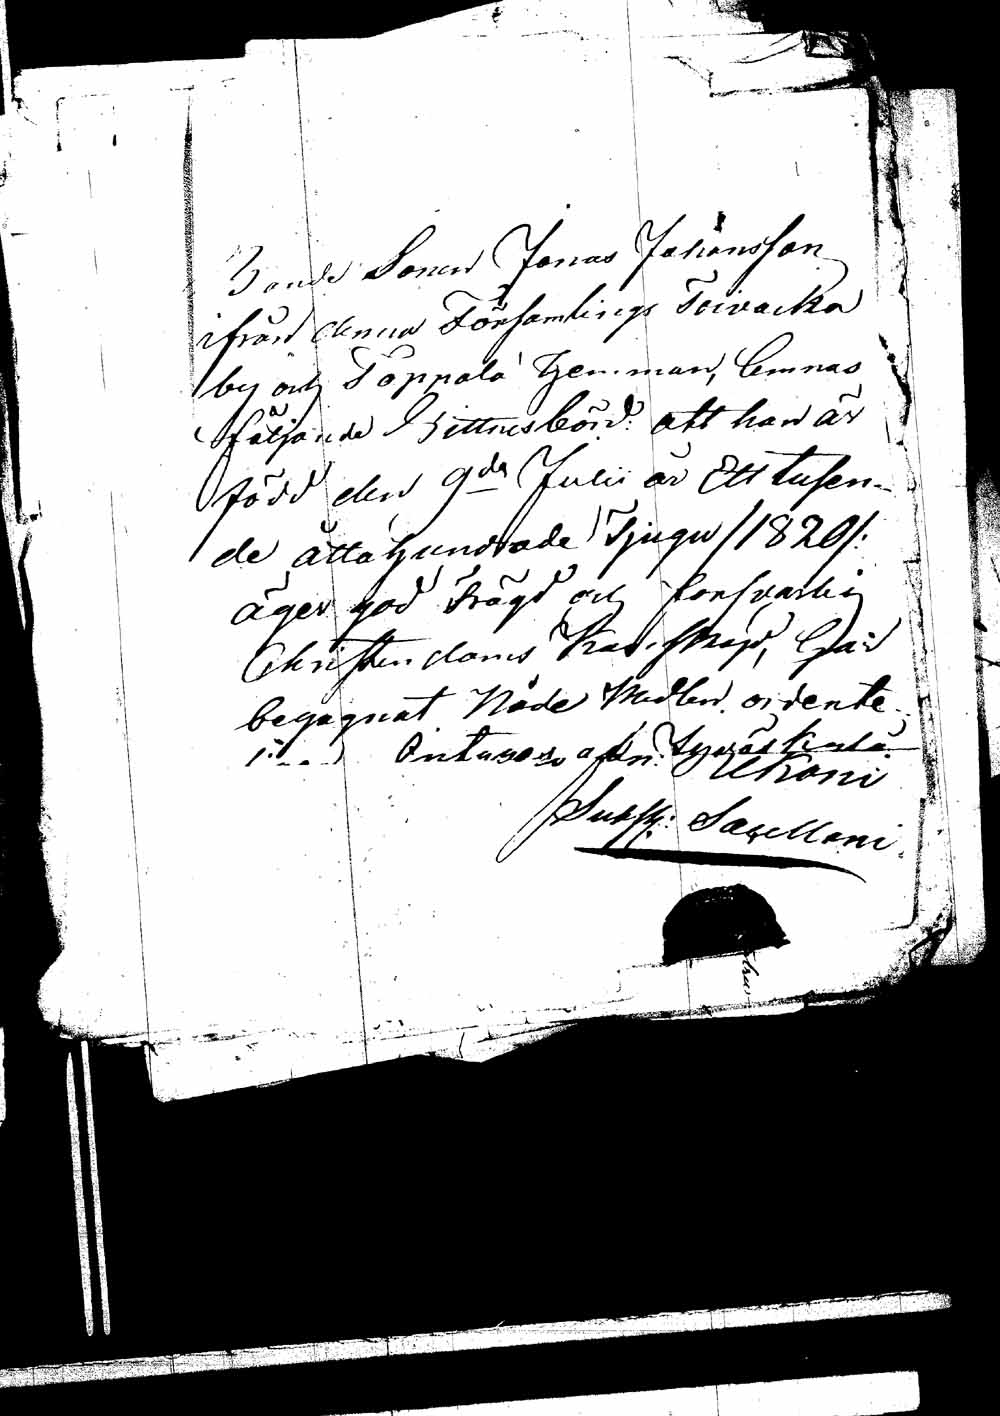 Bonde Sonen Jonas Johansson
ifrån denna Församlings Toivacka
by och Toppala hemman, lemnas
följande Wittnesbörd: att han är
född den 9de Julii år Ett tusen-
de åtta hundrade Tjugu /1820/:
äger god frägd och försvarlig
Christendoms Kunskap, har
begagnat Nåde Medlen ordente-
attn: Jyväskylä
Subst: Sacellani